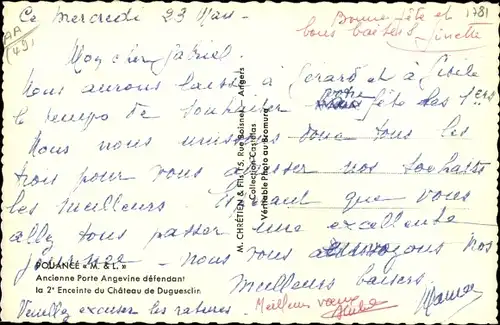 Ce Mercredi 23 Mars - Bonne fête et
bons baisers Ginette
1781
AA
(49)
Mon cher Gabriel
Nous aurons laissé à Gérard et à Gisèle
le temps de souhaiter votre fête les 1ers
Nous nous unissons donc tous les
trois pour vous adresser nos souhaits
les meilleurs. Espérant que vous
allez tous passer une excellente
journée - nous vous envoyons nos
meilleurs baisers.
M. CHRÉTIEN & Fils, 15, Rue Boisnet - Angers
Collection Castellas
Véritable Photo au Bromure
DOUANCÉ « M. & L. »
Ancienne Porte Angevine défendant
la 2e Enceinte du Château de Duguesclin
Veuillez excuser les ratures. Meilleurs vœux